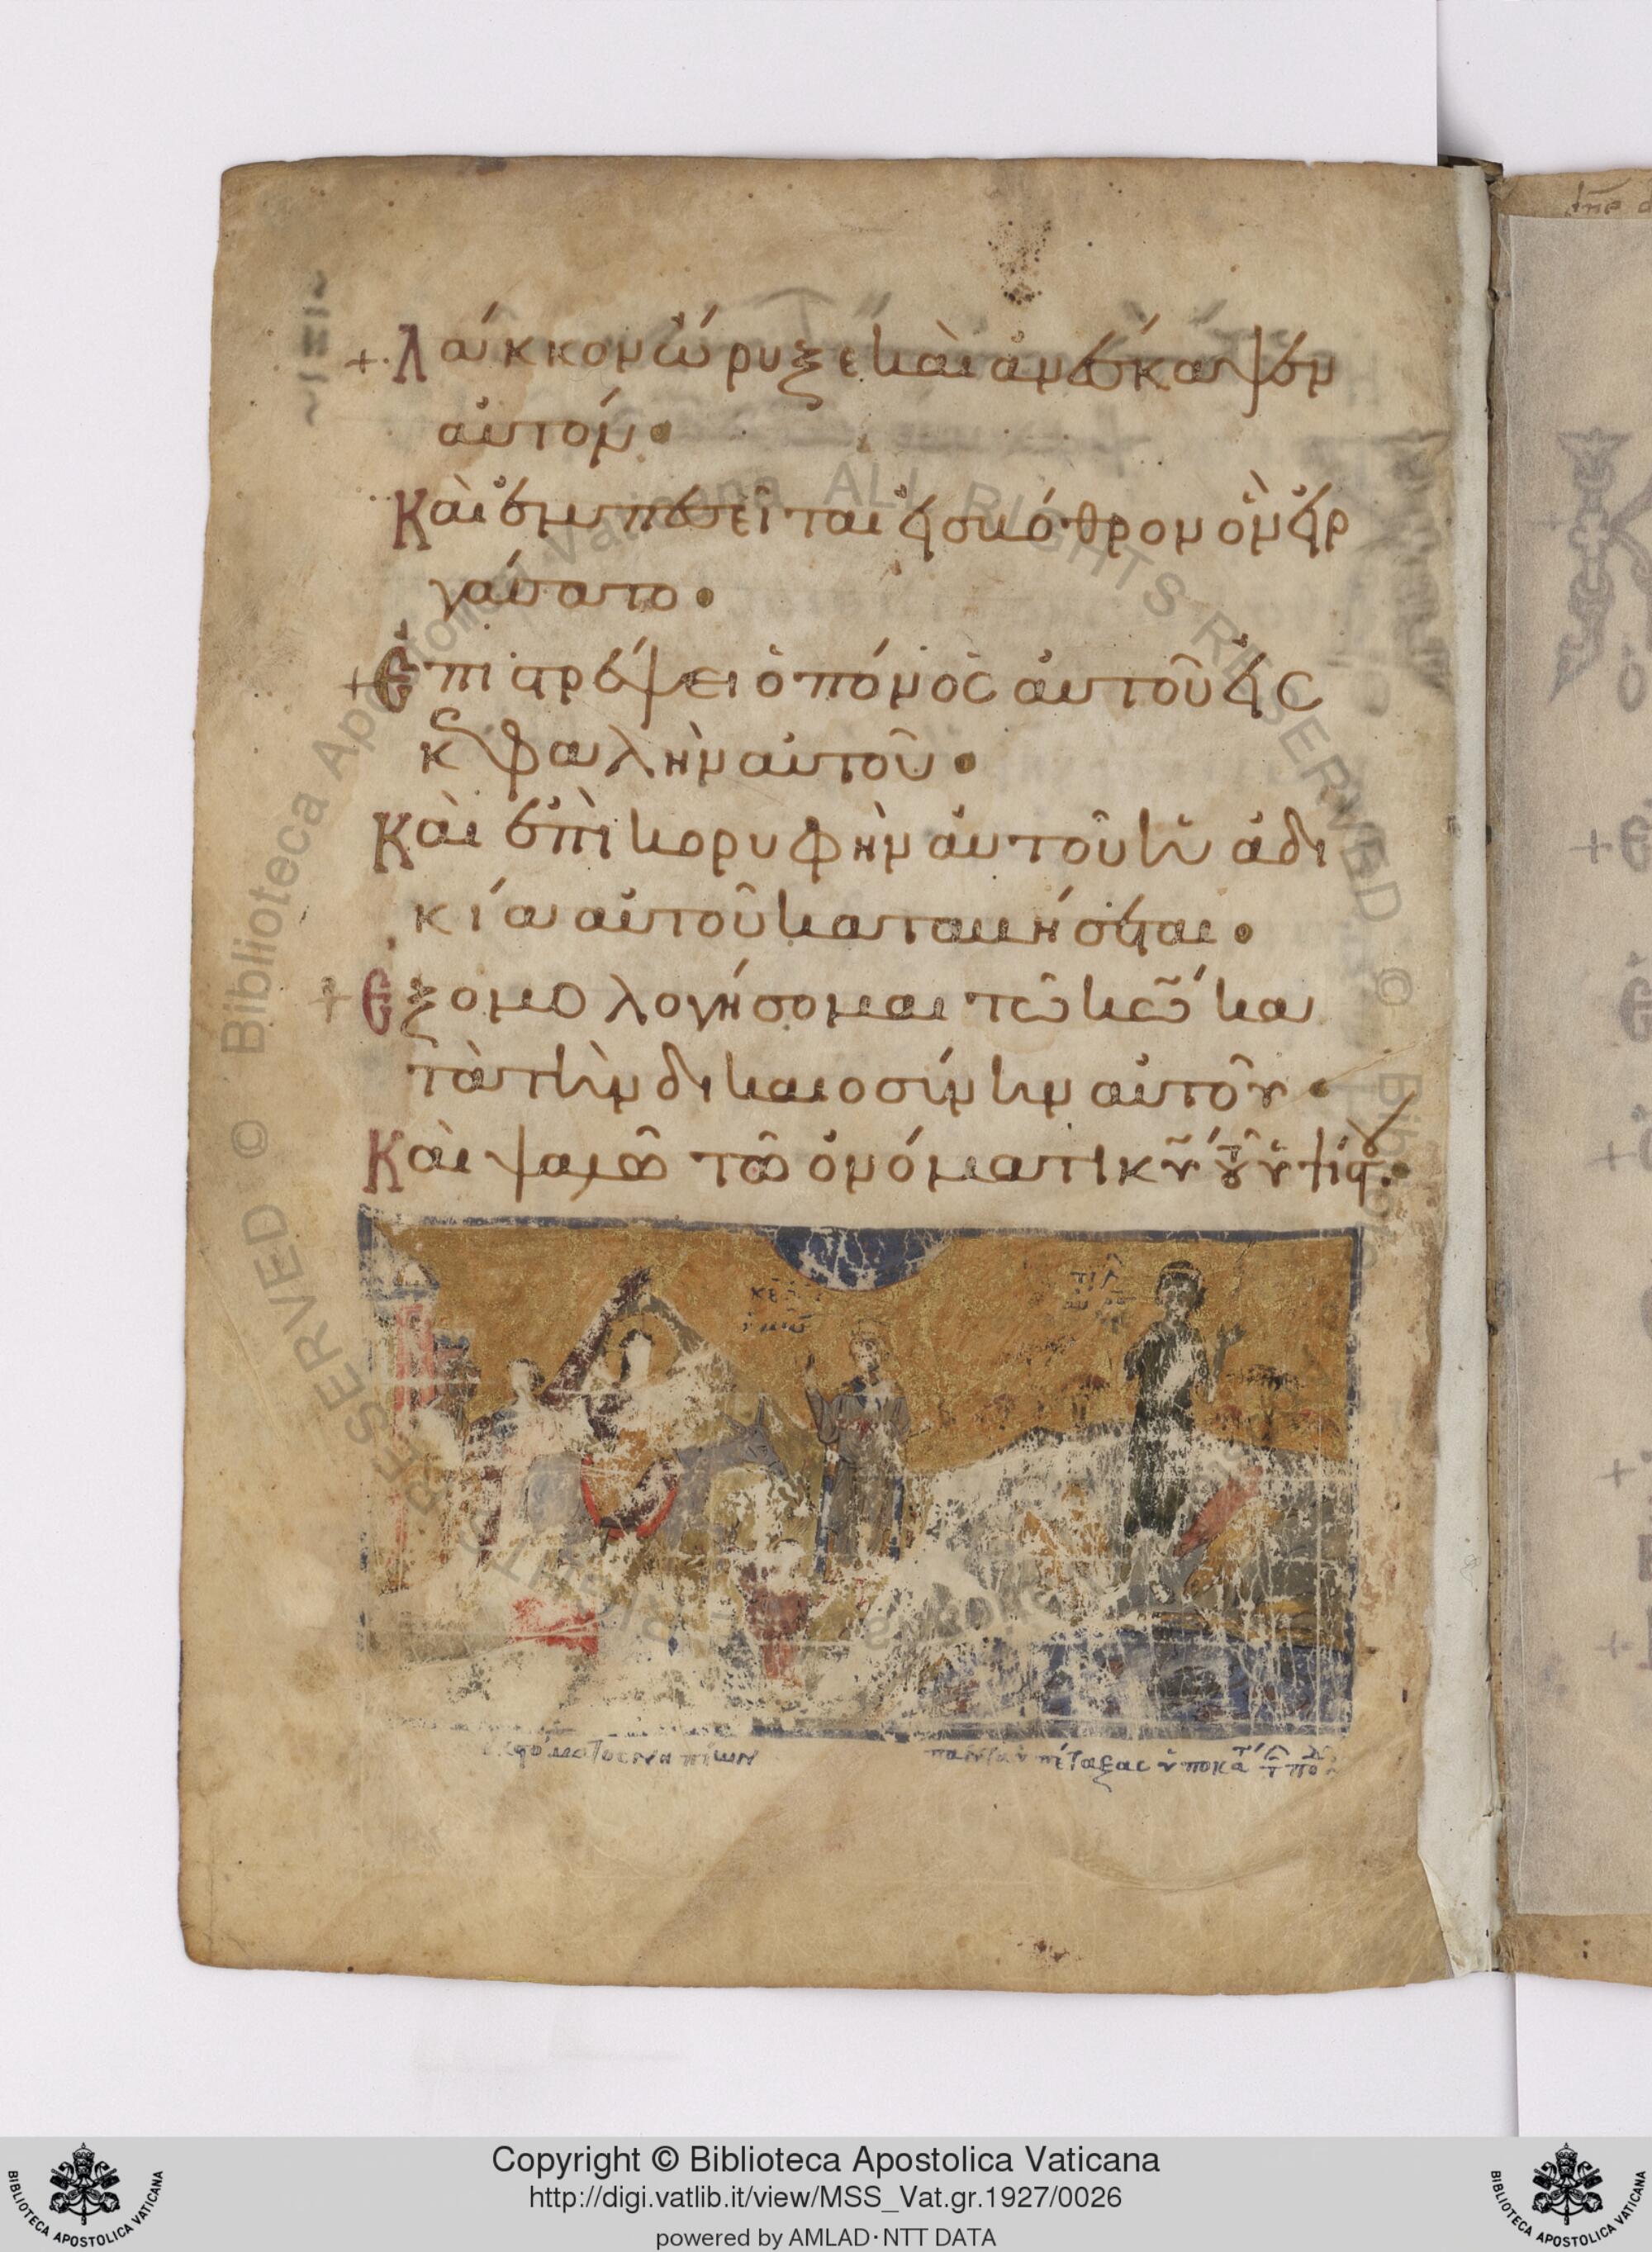 + Λάκκον ὤρυξε καὶ ἀνέσκαψεν
αὐτόν·
Καὶ ἐμπεσεῖται εἰσ κόθρον ὃν εἰρ
γάσατο·
+ Ἐπιστρέψει ὁ πόνος αὐτοῦ εἰς
κεφαλὴν αὐτοῦ·
Καὶ ἐπὶ κορυφὴν αὐτοῦ ἡ ἀδι
κία αὐτοῦ καταβήσεται·
+ Ἐξομολογήσομαι τῶ κῶ κα
τὰ τὴν δικαιοσύνην αὐτοῦ·
Καὶ ψαλῶ τῶ ὀνόματι κυ τοῦ ὑψίστου·
ἐκ στόματος νηπίων
πάντα ὑπέταξας ὑποκά τ πο
© Biblioteca Apostolica Vaticana ALL RIGHTS RESERVED
Copyright © Biblioteca Apostolica Vaticana
http://digi.vatlib.it/view/MSS_Vat.gr.1927/0026
powered by AMLAD·NTT DATA
BIBLIOTECA APOSTOLICA VATICANA
BIBLIOTECA APOSTOLICA VATICANA